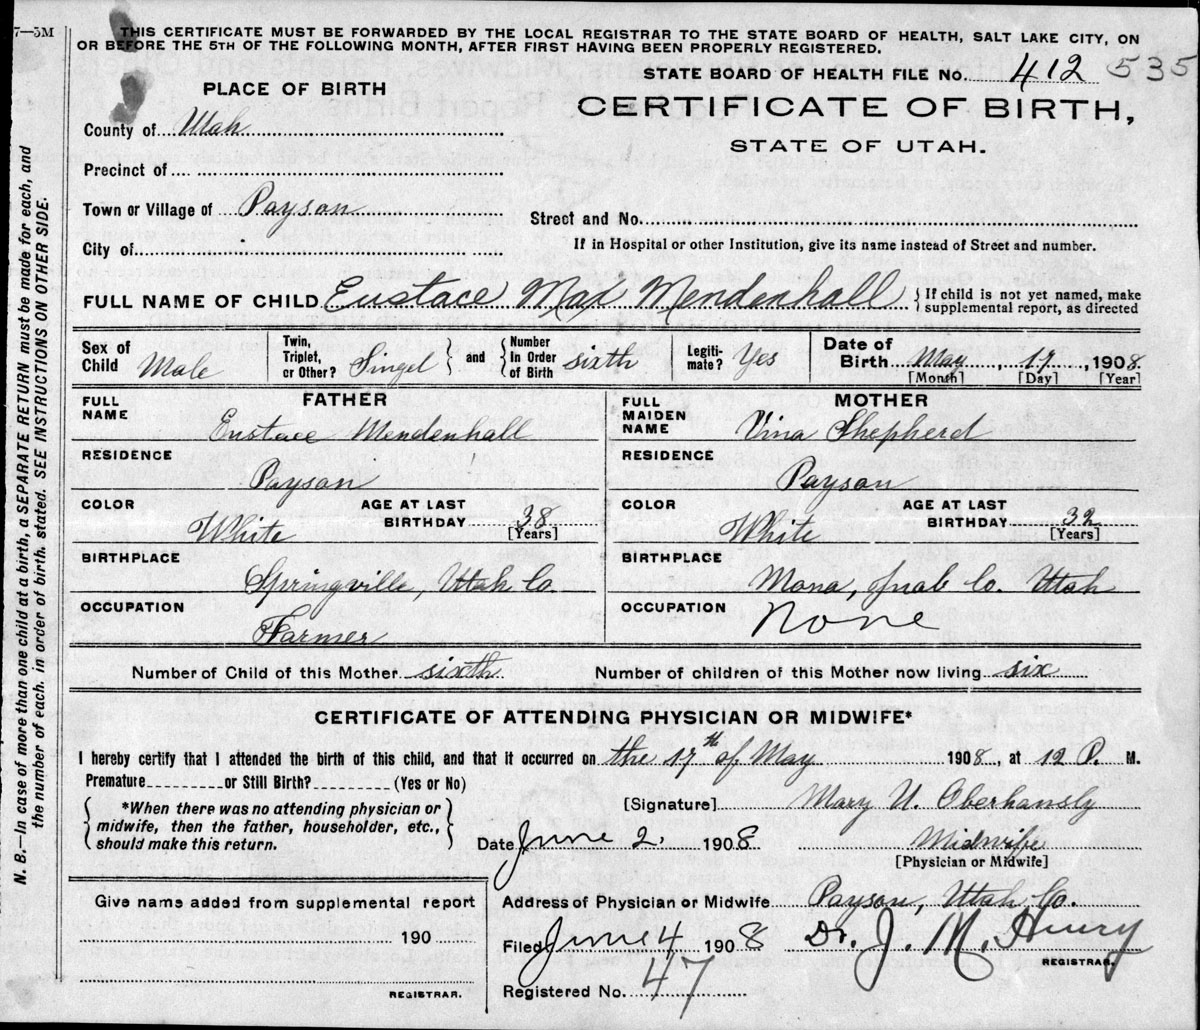 7—3M
THIS CERTIFICATE MUST BE FORWARDED BY THE LOCAL REGISTRAR TO THE STATE BOARD OF HEALTH, SALT LAKE CITY, ON
OR BEFORE THE 5TH OF THE FOLLOWING MONTH, AFTER FIRST HAVING BEEN PROPERLY REGISTERED.
STATE BOARD OF HEALTH FILE No. 412 535
PLACE OF BIRTH
CERTIFICATE OF BIRTH,
STATE OF UTAH.
County of Utah
Precinct of
Town or Village of Payson
Street and No.
City of
If in Hospital or other Institution, give its name instead of Street and number.
FULL NAME OF CHILD Eustace Max Mendenhall { If child is not yet named, make
supplemental report, as directed
Sex of Child Male
Twin, Triplet, or Other? Singel } and { Number In Order of Birth sixth
Legitimate? Yes
Date of Birth May, 17, 1908.
[Month] [Day] [Year]
FATHER
FULL NAME
Eustace Mendenhall
RESIDENCE
Payson
COLOR
White
AGE AT LAST BIRTHDAY 38
[Years]
BIRTHPLACE
Springville, Utah Co.
OCCUPATION
Farmer
MOTHER
FULL MAIDEN NAME
Vina Shepherd
RESIDENCE
Payson
COLOR
White
AGE AT LAST BIRTHDAY 32
[Years]
BIRTHPLACE
Mona, Juab Co. Utah
OCCUPATION
None
Number of Child of this Mother sixth
Number of children of this Mother now living six
CERTIFICATE OF ATTENDING PHYSICIAN OR MIDWIFE*
I hereby certify that I attended the birth of this child, and that it occurred on the 17th of May 1908, at 12 P. M.
Premature or Still Birth? (Yes or No)
{ *When there was no attending physician or
midwife, then the father, householder, etc.,
should make this return. }
[Signature] Mary U. Oberhansly
Date June 2, 1908 Midwife
[Physician or Midwife]
Give name added from supplemental report
190
REGISTRAR.
Address of Physician or Midwife Payson, Utah Co.
Filed June 4 1908 Dr. J. M. Huury
REGISTRAR.
Registered No. 47
N. B.—In case of more than one child at a birth, a SEPARATE RETURN must be made for each, and
the number of each, in order of birth, stated. SEE INSTRUCTIONS ON OTHER SIDE.